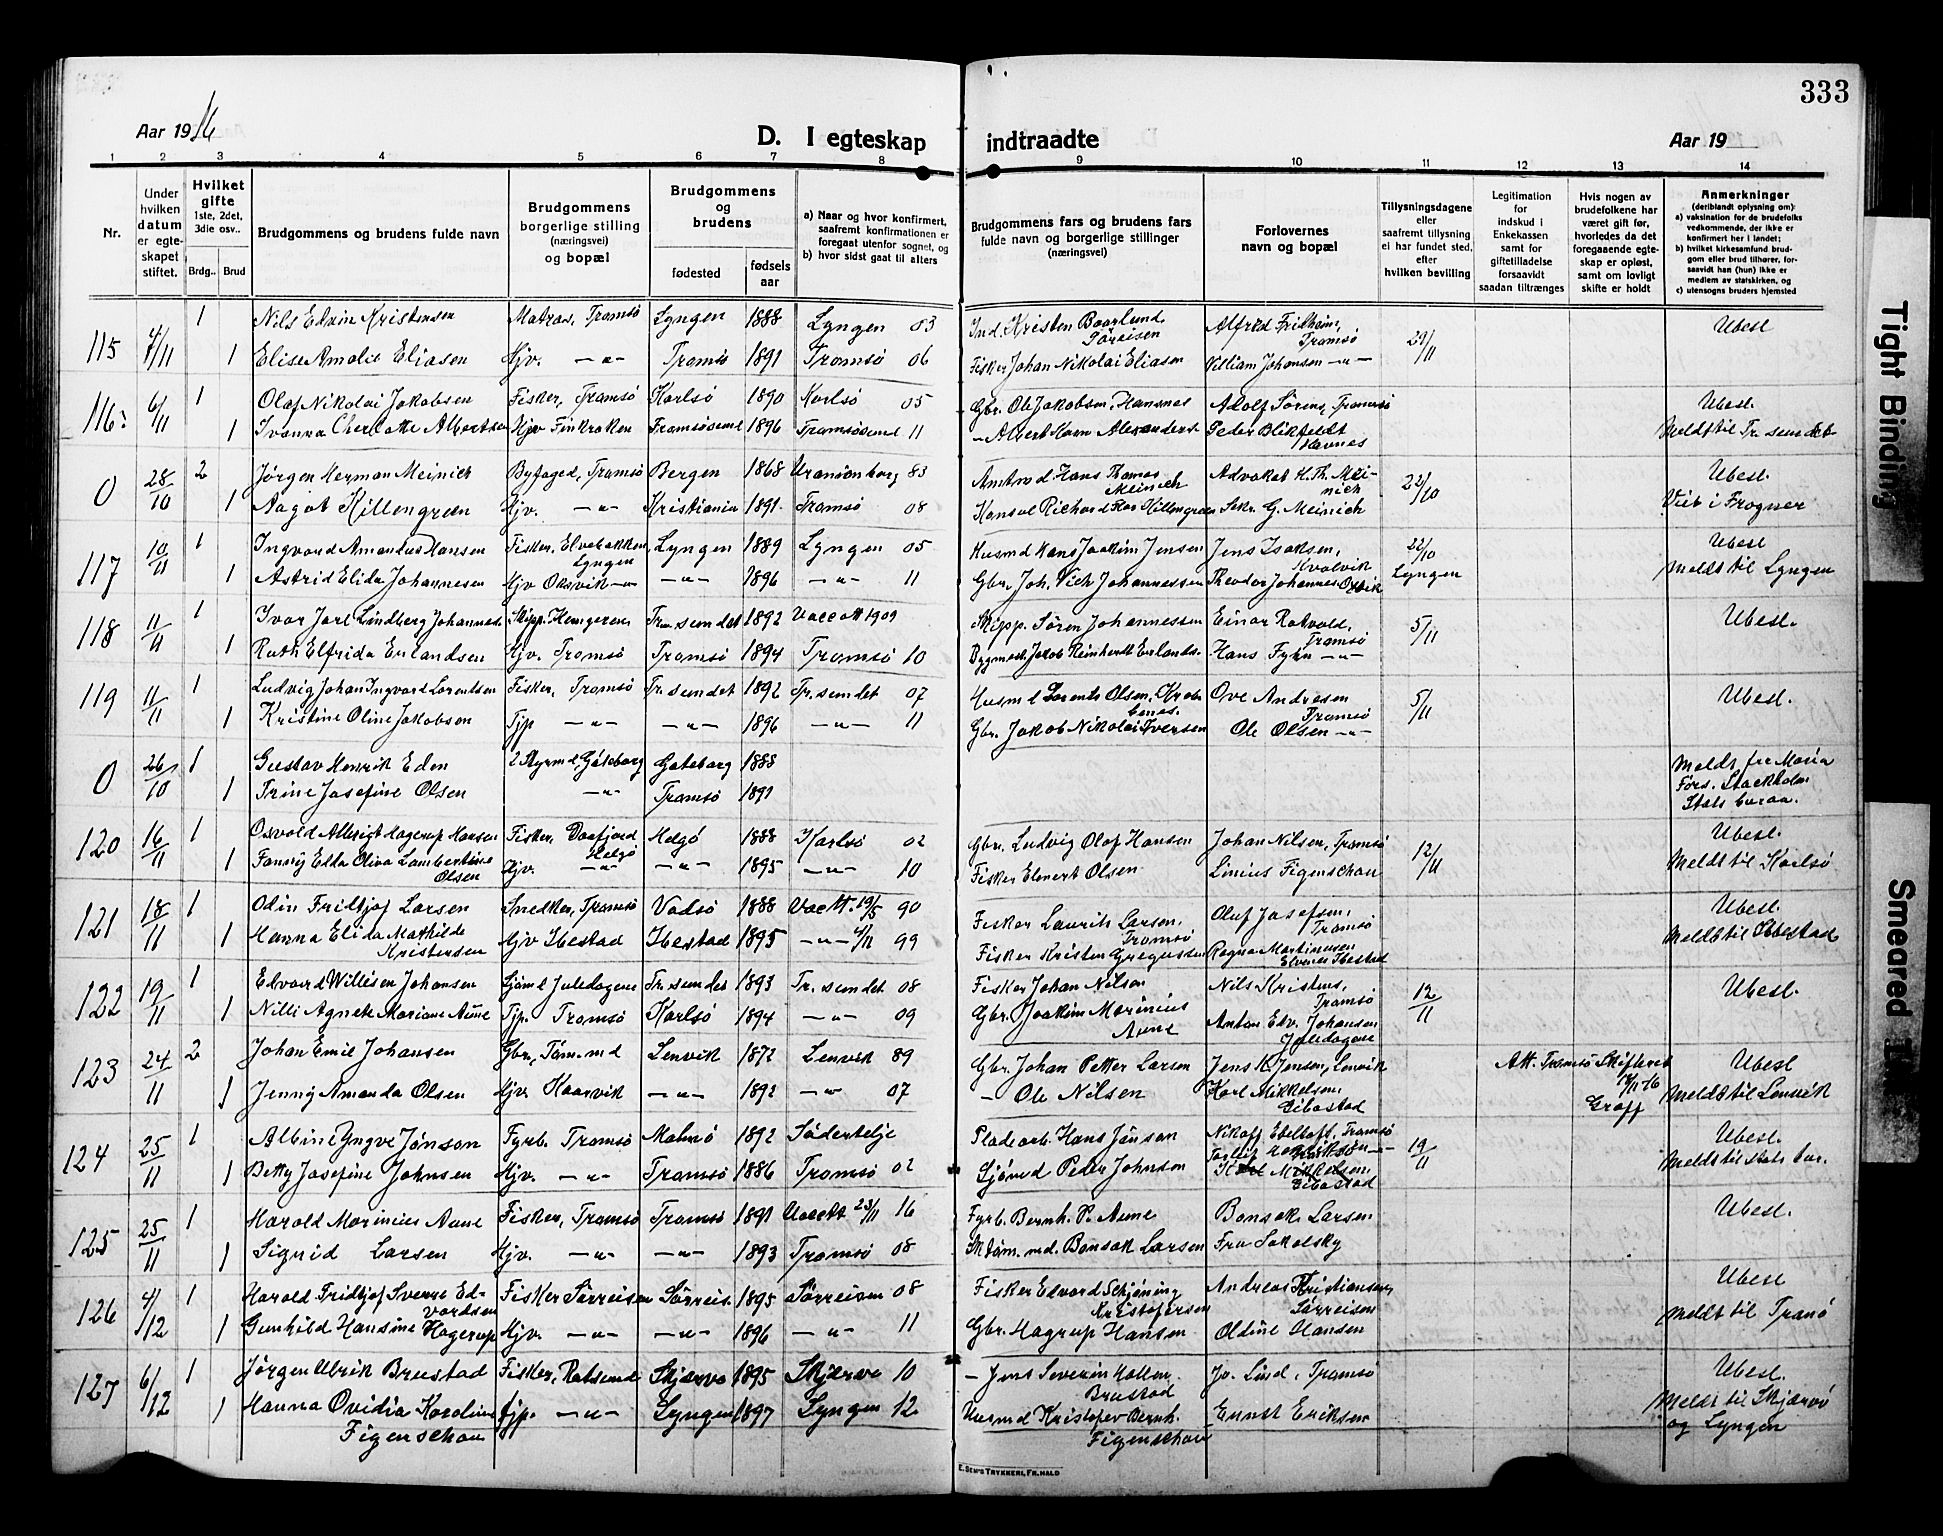 333
Aar 1916
D. I egteskap indtraadte
Aar 19
1 2 3 4 5 6 7 8 9 10 11 12 13 14
Nr.
Under hvilken datum er egte- skapet stiftet.
Hvilket gifte 1ste, 2det, 3die osv..
Brdg.. Brud
Brudgommens og brudens fulde navn
Brudgommens borgerlige stilling (næringsvei) og bopæl
Brudgommens og brudens
fødested
fødsels aar
a) Naar og hvor konfirmert, saafremt konfirmationen er foregaat utenfor sognet, og
b) hvor sidst gaat til alters
Brudgommens fars og brudens fars fulde navn og borgerlige stillinger (næringsvei)
Forlovernes navn og bopæl
Tillysningsdagene eller saafremt tillysning ei har fundet sted, efter hvilken bevilling
Legitimation for indskud i Enkekassen samt for giftetilladelse forsaavidt saadan tiltrænges
Hvis nogen av brudefolkene har været gift før, hvorledes da det foregaaende egte- skap er opløst, samt om lovligt skifte er holdt
Anmerkninger
(deriblandt oplysning om):
a) vaksination for de brudefolks vedkommende, der ikke er konfirmert her i landet;
b) hvilket kirkesamfund brud- gom eller brud tilhører, for- saavidt han (hun) ikke er medlem av statskirken, og
c) utensogns bruders hjemsted
115 4/11 1 Nils Edvin Kristensen Matros, Tromsö Lyngen 1888 Lyngen 03 Ind. Kristen Baarlund, Sörreisen Alfred Fridheim, Tromsö Ubesl
1 Elise Amalie Eliasen Hjv. —"— Tromsö 1891 Tromsö 06 Fisker Johan Nikolai Eliasen Villiam Johansen —"—
116. 6/11 1 Olaf Nikolai Jakobsen Fisker, Tromsö Karlsö 1890 Karlsö 05 Gbr. Ole Jakobsen, Hansnes Adolf Sörens, Tromsö Ubesl.
1 Ivanna Charlotte Albertsen Hjv Finkroken Tromsösund 1896 Tromsösund 11 Peder Blikfeldt Havnes Meldt til Tr. sundet
0 28/10 2 Jørgen Herman Meinich Byfoged, Tromsö Bergen 1868 Uranienborg 83 Amtmd. Hans Thomas Meinich Advokat H. Th. Mei- nich 22/10 Ubesl.
1 Aagot Killengreen Hjv. —"— Kristiania 1891. Tromsö 08 Konsul Richard Killengreen Sekr. G. Meinich Viet i Frogner
117 10/11 1 Ingvard Amandus Hansen Fisker, Elvebakken, Lyngen Lyngen 1889 Lyngen 05 Husmd Hans Joakim Jensen Jens Isaksen, Kvalvik 22/10 Lyngen Ubesl
1 Astrid Elida Johannesen Hjv Oksvik —"— —"— 1896 —"— 11 Gbr. Joh. Vick Johannessen Theodor Johannes Oksvik Meldt til Lyngen
118 11/11 1 Ivar Jarl Lindberg Johannes. Skipp. Tr. sundet 1892 Vacc att 1909 Skipp. Sören Johannessen Einar Rotvold, Tromsö 5/11 Ubesl.
1 Ruth Elfrida Erlandsen Hjv. Tromsö Tromsö 1894 Tromsö 10 Bygmest. Jakob Reinhardt Erlands. Hans Fyhn —"—
119 11/11 1 Ludvig Johan Ingvard Lorentsen Fisker, Tromsö Tr. sundet 1892 Tr. sundet 07 Husmd Lorents Olsen, Ove Andresen Tromsö 5/11 Ubesl.
1 Kristine Oline Jakobsen Tjp —"— —"— 1896 —"— 11 Gbr. Jakob Nikolai Iversen Ole Olsen —"—
0 26/10 1 Gustav Henrik Eden 2 Styrmd, Göteborg Göteborg 1888 Meldt fra Maria Förs. Stockholm
1 Trine Josefine Olsen —"— Tromsö 1891 Stats buraa.
120 16/11 1 Osvold Albrigt Hagerup Hansen Fisker, Daafjord Helgö Helgö 1888 Karlsö 02 Gbr. Ludvig Olaf Hansen Johan Nilsen, Tromsö 12/11 Ubesl.
1 Fanny Etta Oliva Lambertine Olsen Hjv. —"— —"— 1895 —"— 10 Fisker Elenert Olsen Linius Figenschau Meldt til Karlsö
121 18/11 1 Odin Fridtjof Larsen Snedker, Tromsö Vadsö 1888 Vac att. 19/5 90 Fisker Laurits Larsen, Tromsö Oluf Josefsen, Tromsö Ubesl.
1 Hanna Elida Mathilde Kristensen Hjv Ibestad Ibestad 1895 —"— 4/11 99 Fisker Kristen Gregusson Ragnar Martinusen Elvenes Ibestad Meldt til Ibestad
122 19/11 1 Edvard Willisen Johansen Sjömd Tr. sundet 1893 Tr. sundet 08 Fisker Johan Nilsen Nils Kristens, Tromsö 12/11 Ubesl.
1 Nilli Agnete Mariane Aune Tjp. Tromsö Karlsö 1894 —"— 09 Gbr. Joakim Marinius Aune Anton Edv. Johansen
123 24/11 2 Johan Emil Johansen Gbr., Töm.md Lenvik 1872 Lenvik 89 Gbr. Johan Petter Larsen Jens K. Jensen, Lenvik Att. Tromsö Skifteret Ubesl
1 Jenny Amanda Olsen Hjv. Kaarvik —"— 1892 —"— 07 — Ole Nilsen Karl Mikkelsen, Gibostad Graff Meldt til Lenvik
124 25/11 1 Albin Yngve Jönson Fyrb. Tromsö Malmö 1892 Södertelje Pladearb. Hans Jönson Nikoff Ebeltoft, Tromsö 19/11 Ubesl.
1 Betty Josefine Johnsen Hjv. —"— Tromsö 1886 Tromsö 02 Sjömd Peter Johnson Meldt til stats bur.
125 25/11 1 Harald Marinius Aune Fisker, Tromsö Tromsö 1891 Vacc att 23/11 16 Fyrb. Bernh. P. Aune Bonsak Larsen Ubesl.
1 Sigrid Larsen Hjv. —"— —"— 1893 Tromsö 08 Bonsak Larsen Fru Sokolsky
126 4/12 1 Harald Fridtjof Sverre Ed- vardsen Fisker Sörreisen Sörreis. 1895 Sörreisen 08 Fisker Edvard Schjöning Kristofersen Andreas Kristiansen, Sörreisen Ubesl
1 Gunhild Hansine Hagerup Hjv. —"— —"— 1896 —"— 11 Gbr. Hagrup Hansen Oldine Hansen Meldt til Tranö
127 6/12 1 Jørgen Ulrik Brustad Fisker, Rotsund Skjervö 1895 Skjervö 10 — Jens Severin Brustad Jo. Lind, Tromsö Ubesl.
1 Hanna Ovidia Karoline Figenschau Tjp. —"— Lyngen 1897 Lyngen 12 Husmd Kristofer Bernh. Figenschau Ernst Eriksen Meldt til Skjærvö og Lyngen
E. Sem's Trykkeri, Fr.hald
Tight Binding
Smeared